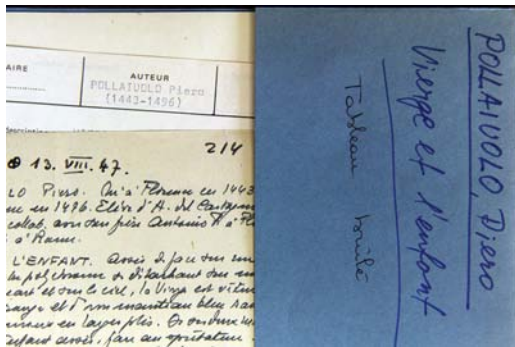 AIRE
AUTEUR
POLLAIUOLO Piero
(1443-1496)
2/4
13. VIII. 47.
LO Piero. Né à Florence en 1443
en 1496. Elève d'A. del Castagno
collab. avec son frère Antonio P. à
à Rome.
L'ENFANT. Assis de face sur un
se détachant sur un
et sur le ciel, la Vierge est vêtue
et d'un manteau bleu
en larges plis.
enfant assis, face au spectateur
POLLAIUOLO, Piero
Vierge et l'enfant
Tableau brûlé